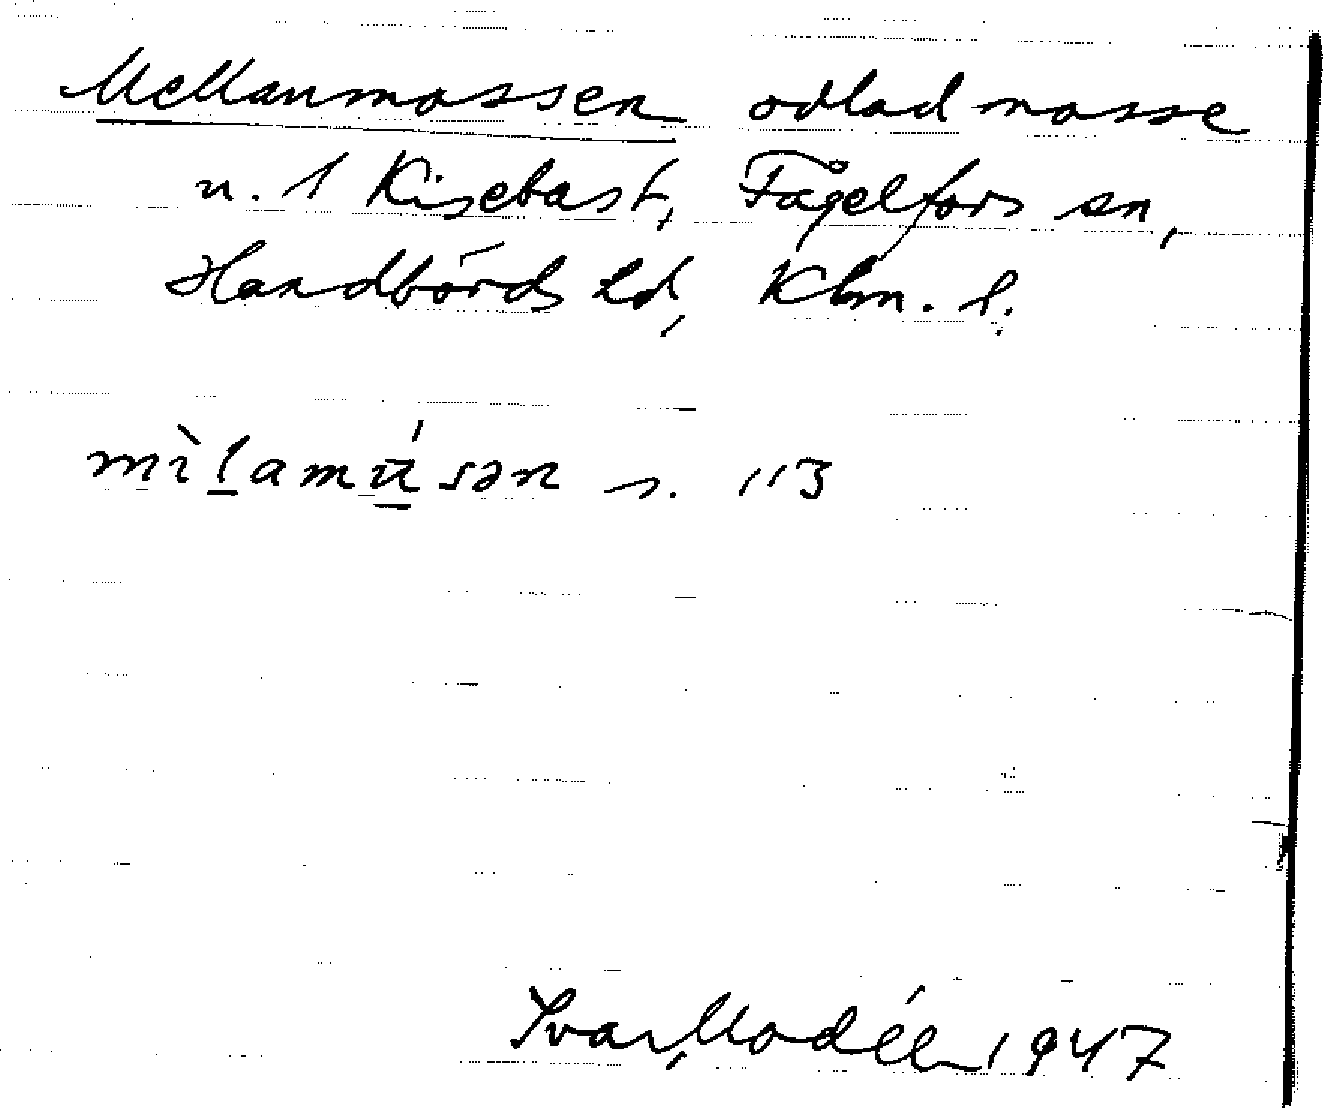 Mellanmossen odlad mosse
n. 1 Kisebast, Fågelfors sn,
Handbörds hd, Klm. l.
mìlamúsən s. 113
Ivar Modéer 1947